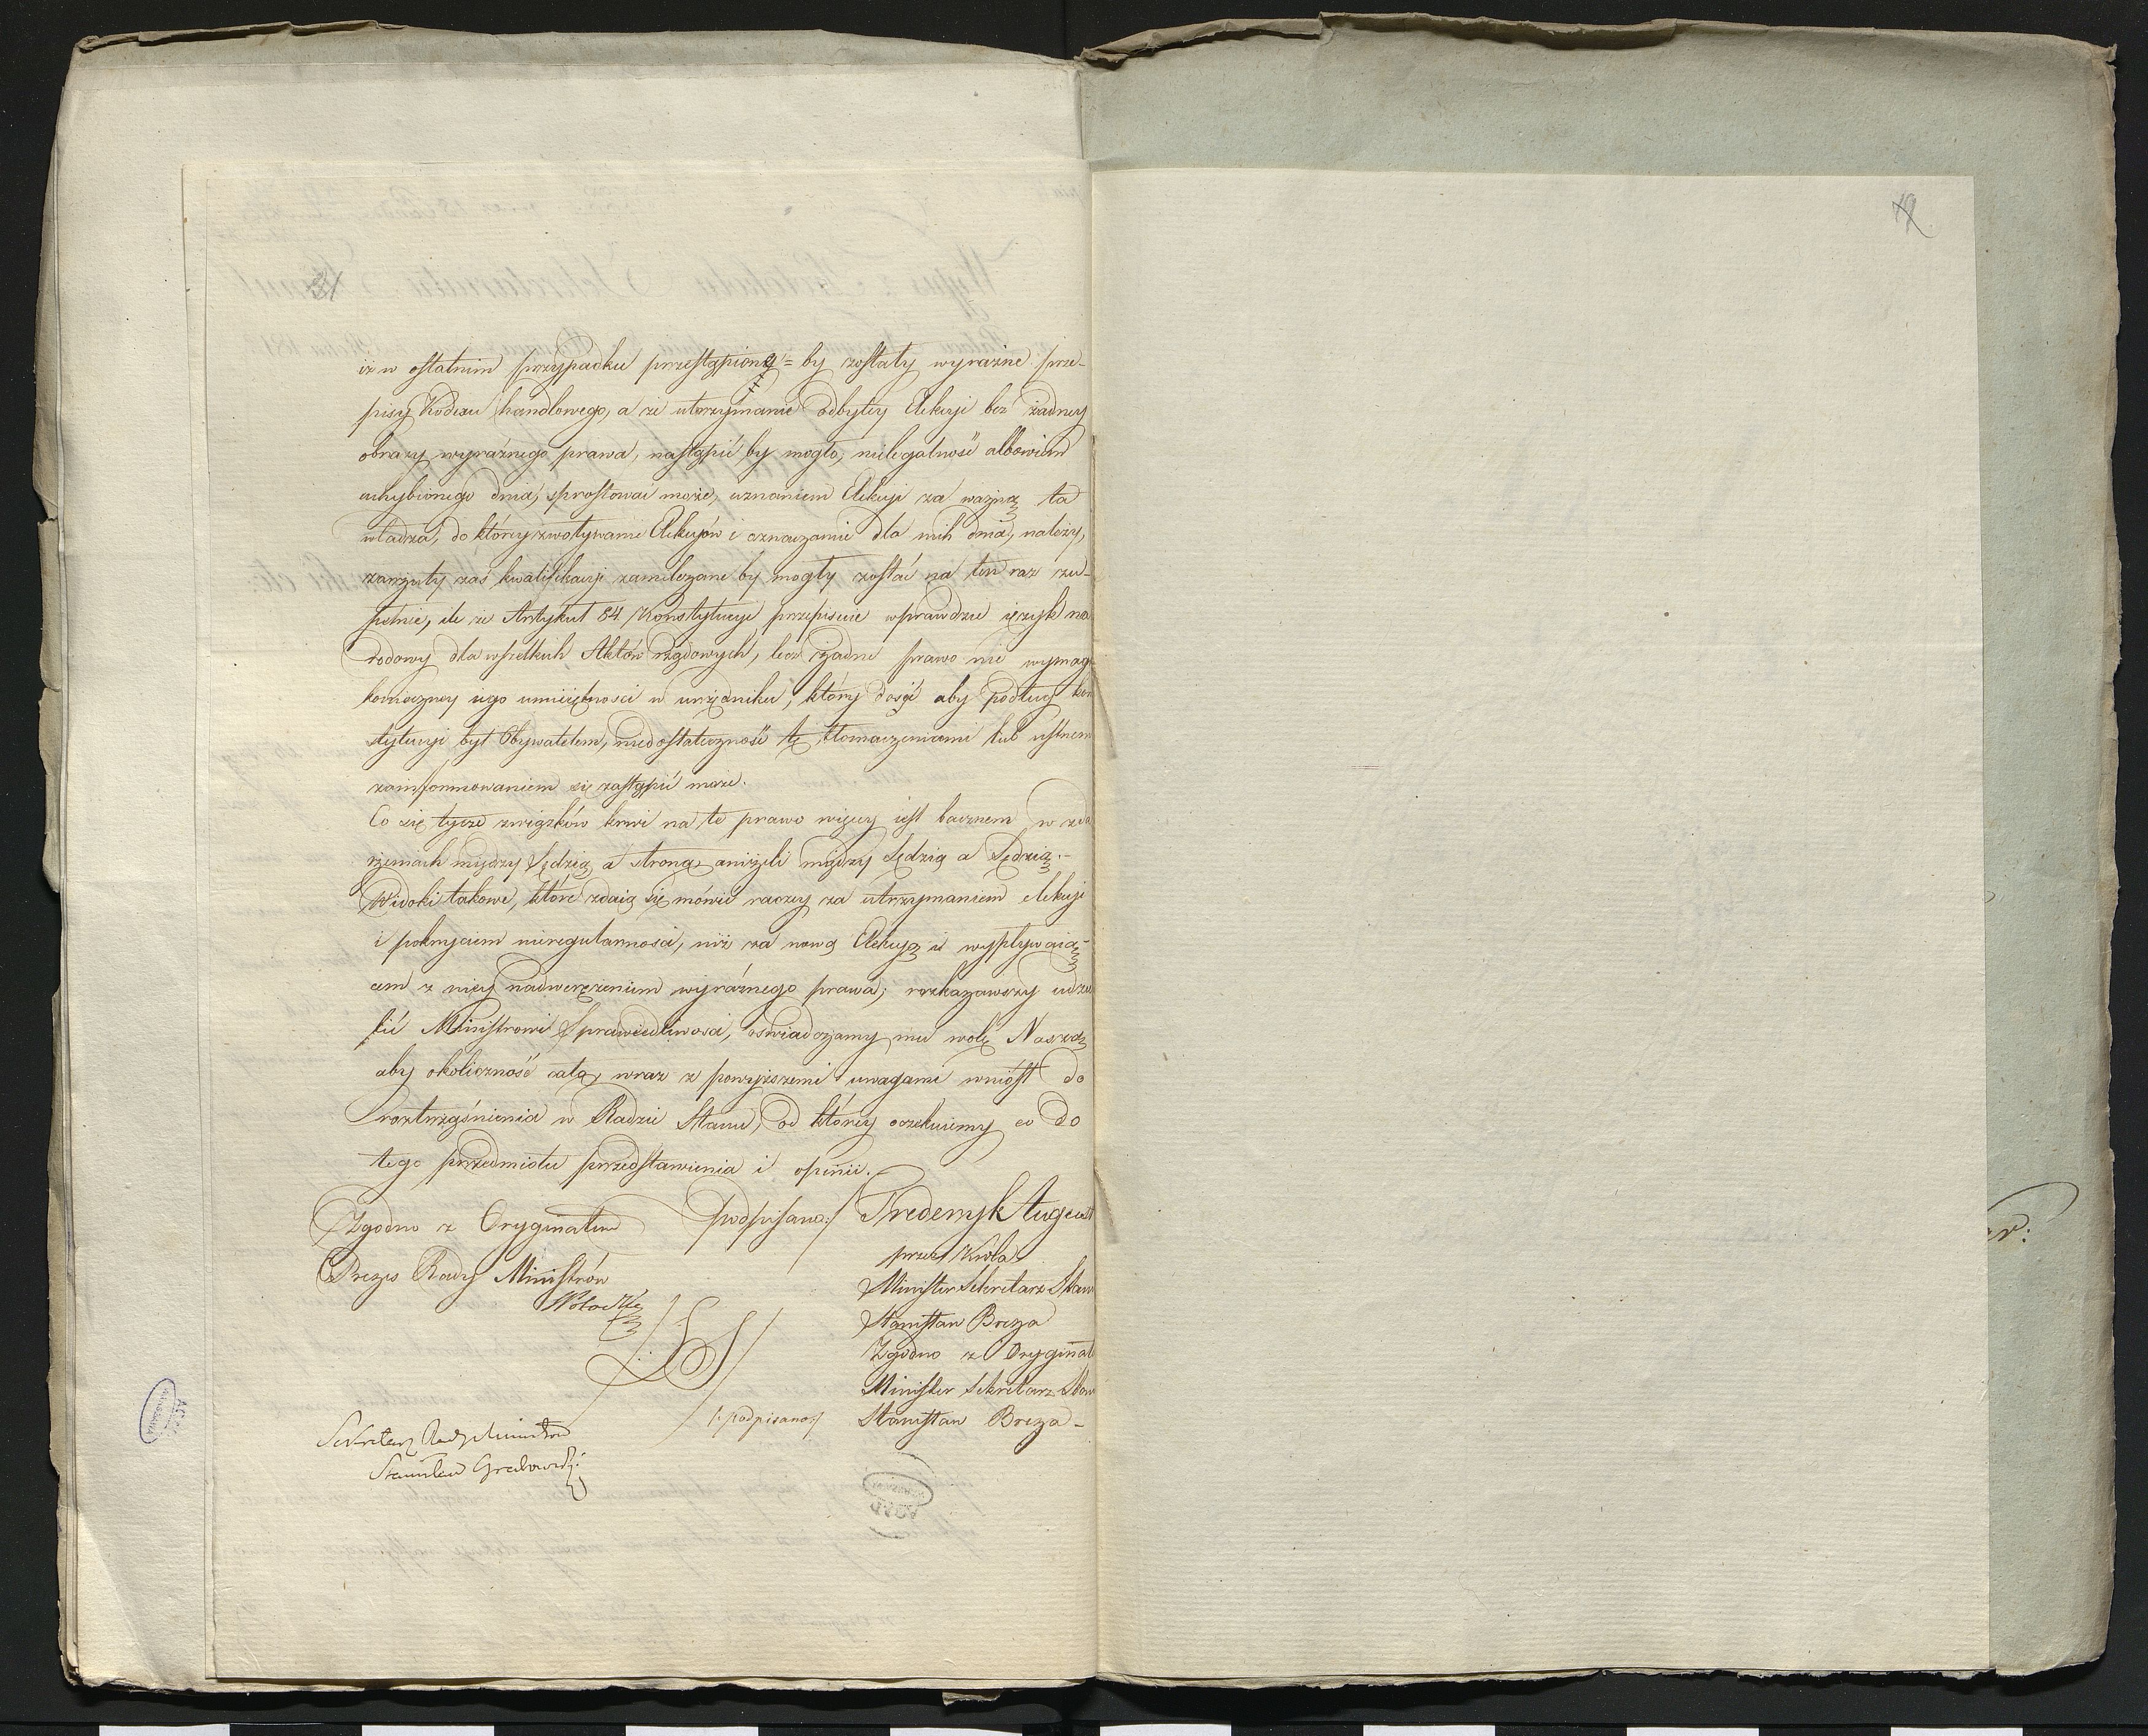 iż w ostatnim przypadku przestąpione=by zostały wyraźne prze-
pisy Kodexu handlowego, a że utrzymanie odbytey Elekcyi bez żadney
obrazy wyraźnego prawa, nastąpić by mogło, nielegalność albowiem
uchybionego dnia, sprostować może, uznaniem Elekcyi za ważną ta
władza, do którey zwoływanie Elekcyów i oznaczanie dla nich dnia, należy,
zarzuty zaś kwalifikacyi zamilczane by mogły zostać na ten raz zu-
pełnie, ile że Artykuł 84 Konstytucyi przepisuie wprawdzie ięzyk na
rodowy dla wszelkich Aktów rządowych, lecz żadne prawo nie wymaga
konieczney iego umieiętności w urzędniku, który dosyć aby podług kon
stytucyi był Obywatelem, niedostateczność tę tłomaczeniami lub ustnem
zainformowaniem się zastąpić może.
Co się tycze związków krwi na te prawo więcey iest bacznem w zda
rzeniach między Sędzią a stroną, aniżeli między Sędzią a Sędzią.-
Widoki takowe, które zdaią się mówić raczey za utrzymaniem elekcyi
i pokryciem nieregularności, niż za nową Elekcyą i wypływaią-
cem z niey nadwerężeniem wyraźnego prawa; rozkazawszy udzie
lić Ministrowi Sprawiedliwości, oświadczamy mu wolę Naszą
aby okoliczność całą, wraz z powyższemi uwagami wniósł do
roztrząśnienia w Radzie Stanu, od którey oczekuiemy co do
tego przedmiotu przedstawienia i opinii.
Zgodno z Oryginałem podpisano:/ Frederyk August
przez Króla
Prezes Rady Ministrów
Minister Sekretarz Stanu
Potocki
Stanisław Breza
LS
Zgodno z Oryginał
Minister Sekretarz Stanu
/:podpisano:/ Stanisław Breza-
Sekretarz Rady Ministrów
Stanisław Grabowski